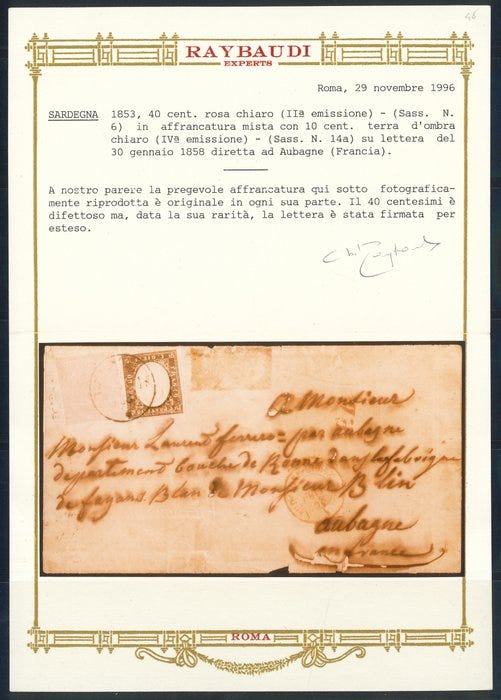 46
RAYBAUDI
EXPERTS
Roma, 29 novembre 1996
SARDEGNA 1853, 40 cent. rosa chiaro (IIª emissione) - (Sass. N.
6) in affrancatura mista con 10 cent. terra d'ombra
chiaro (IVª emissione) - (Sass. N. 14a) su lettera del
30 gennaio 1858 diretta ad Aubagne (Francia).
A nostro parere la pregevole affrancatura qui sotto fotografica-
mente riprodotta è originale in ogni sua parte. Il 40 centesimi è
difettoso ma, data la sua rarità, la lettera è stata firmata per
esteso.
A Monsieur
Monsieur Laurent ferrero = par aubagne
departement bouche de Ronne dans la fabrique
de fayans Blan de Monsieur B lin
aubagne
en france
ROMA